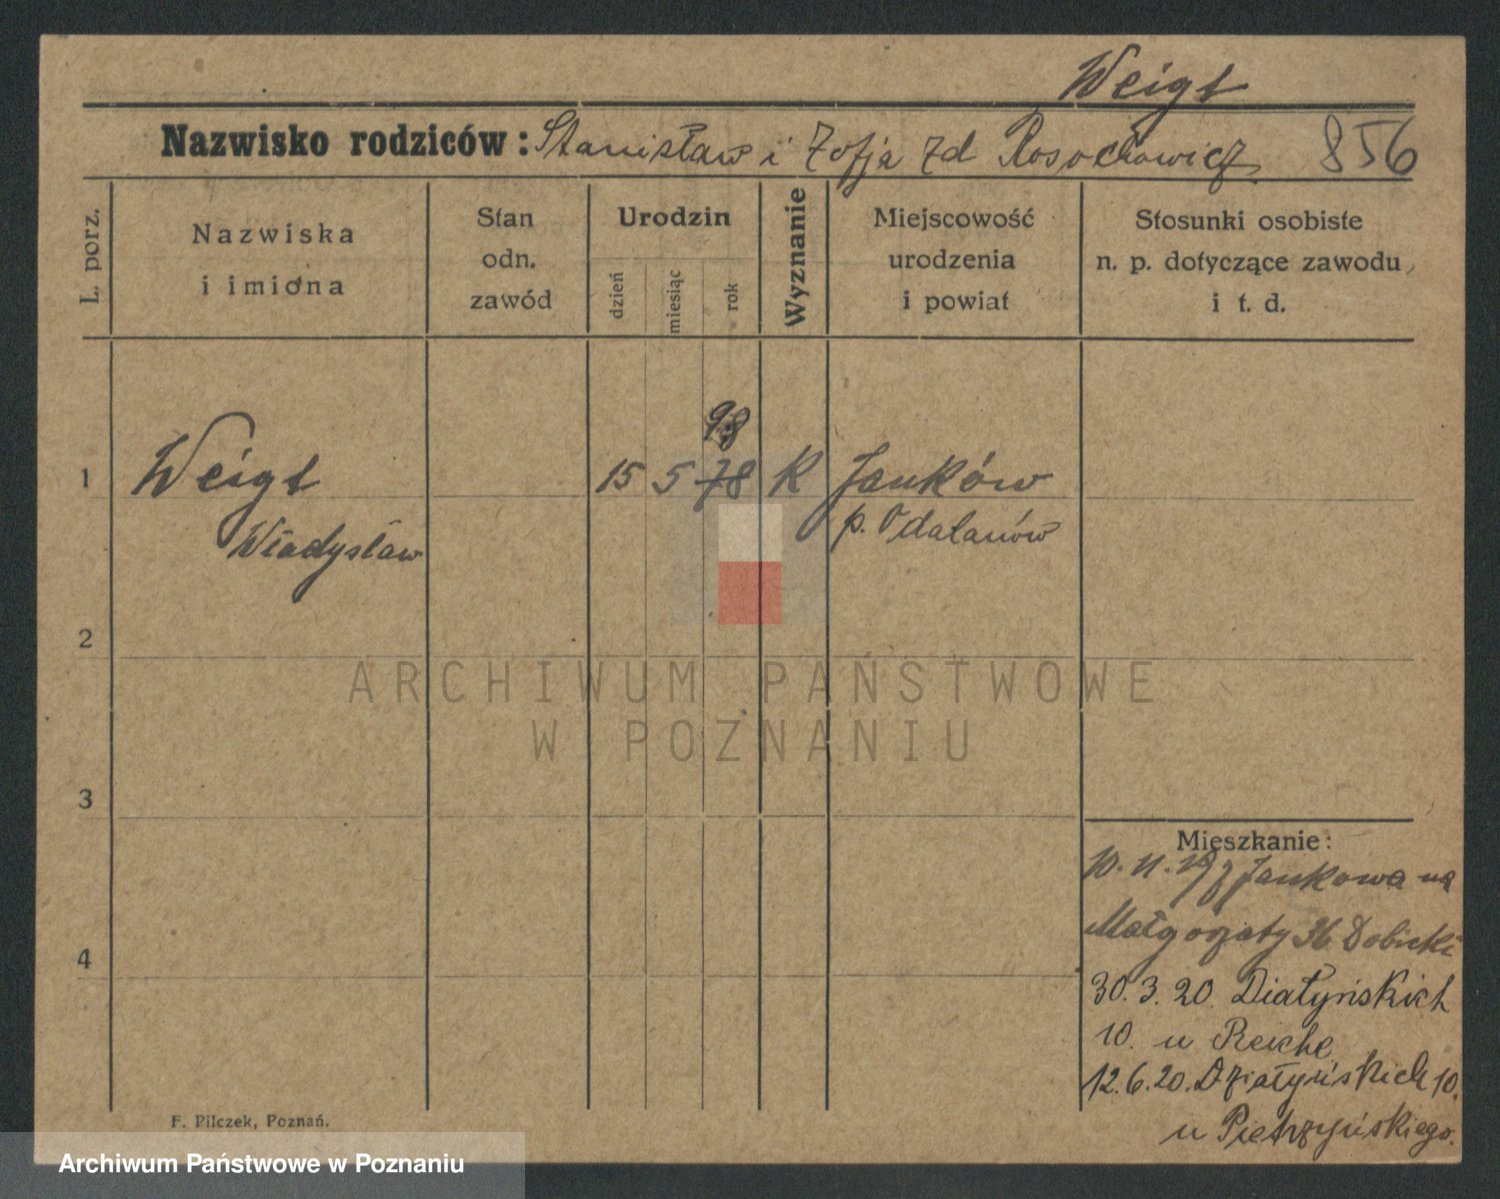 Weigt
Nazwisko rodziców: Stanisław i Zofja zd Rosochowicz 856
L. porz.
Nazwiska
i imiona
Stan
odn.
zawód
Urodzin
dzień
miesiąc
rok
Wyznanie
Miejscowość
urodzenia
i powiat
Stosunki osobiste
n. p. dotyczące zawodu,
i t. d.
98
1 Weigt 15 5 78 K Janków
Władysław p. Odalanów
2
3
4
ARCHIWUM PAŃSTWOWE
W POZNANIU
Mieszkanie:
10. 11. 19 z Jankowa na
Małgorzaty 36 Dobicki
30. 3. 20. Diałyńskich
10. u Reiche
12. 6. 20. Działyńskich 10.
u Pietrzyńskiego.
F. Pilczek, Poznań.
Archiwum Państwowe w Poznaniu